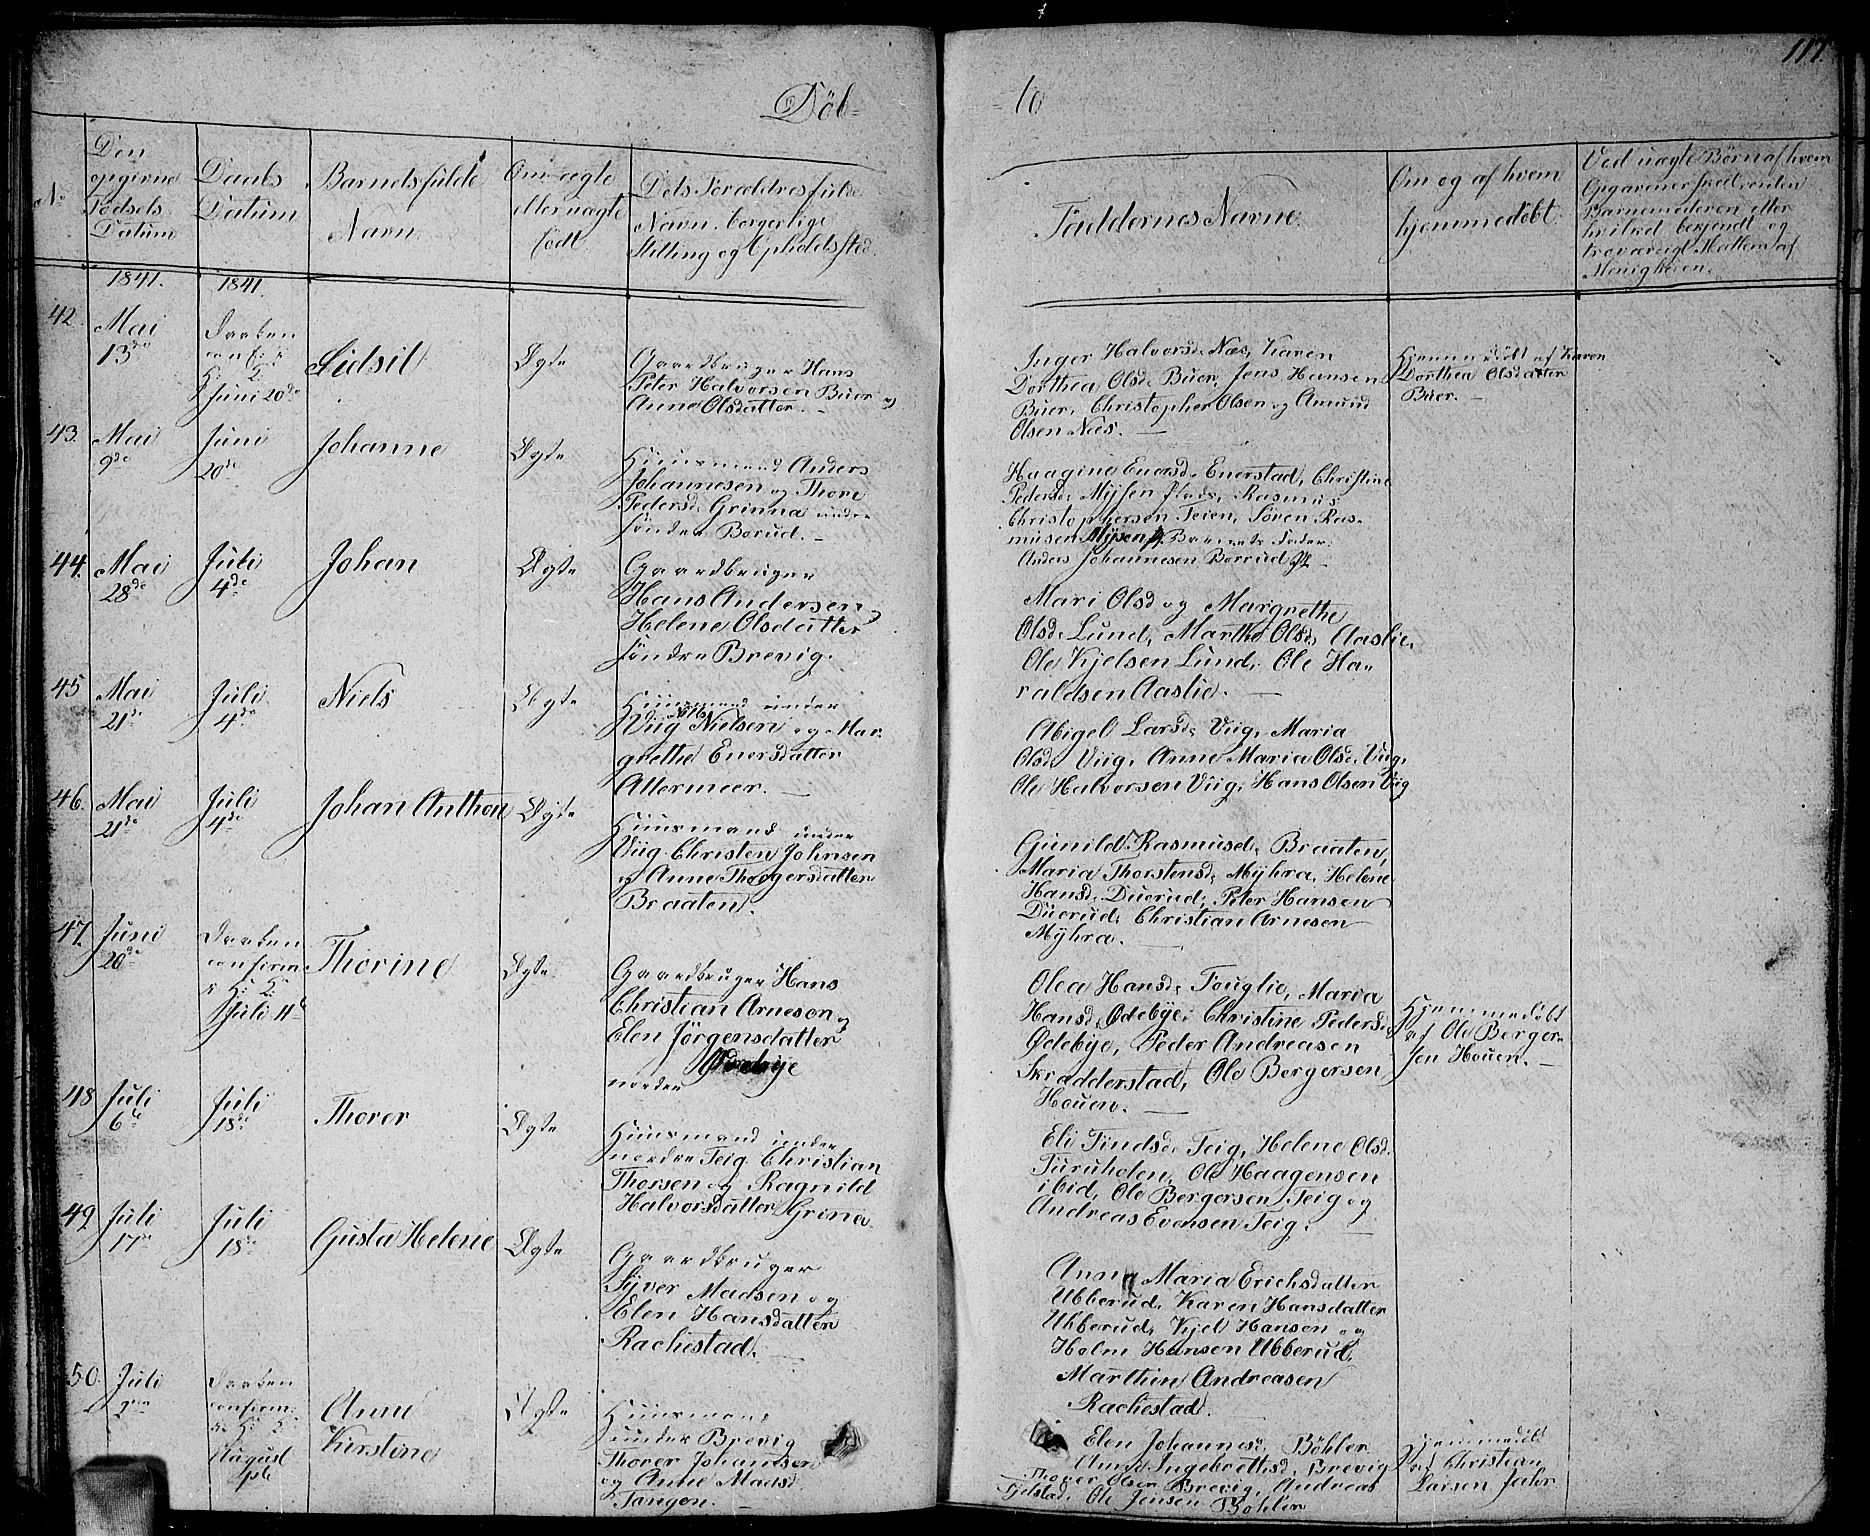 117.
Döb-
-te
No
Den
opgivne
Födsels-
Datum
Daabs
Datum
Barnets fulde
Navn.
Om ægte
eller uægte
födt
Dets Forældres fulde
Navn, borgerlige
Stilling og Opholdssted.
Faddernes Navne.
Om og af hvem
hjemmedöbt.
Ved uægte Börn af hvem
Opgaven er sked, enten
Barnemoderen eller
hvilket bekjendt og
troværdigt Medlem af
Menigheden.
1841.
1841.
42.
Mai
13de
Daaben
conf: i
K:
Juni 20de
Sidsil
Ægte
Gaardbruger Hans
Peter Halvorsen Buer og
Anne Olsdatter. -
Inger Halvorsd. Næs, Karen
Dorthea Olsd. Buer, Jens Hansen
Buer, Christopher Olsen og Amund
Olsen Næs. -
Hjemmedöbt af Karen
Dorthea Olsdatter
Buer. -
43.
Mai
9de
Juni
20de
Johanne
Ægte
Huusmand Anders
Johannesen og Thore
Pedersd. Grinna under
söndre Borud. -
Haagine Enersd. Enerstad, Christine
Pedersd. Mysen Plads, Rasmus
Christophersen Teien, Sören Ras-
musen Mysen, Barnets Fader
Anders Johannesen Borrud Pl. -
44.
Mai
28de
Juli
4de
Johan
Ægte
Gaardbruger
Hans Andersen og
Helene Olsdatter
söndre Brevig.
Mari Olsd. og Margrethe
Olsd. Lund, Marthe Olsd. Aaslie,
Ole Kjelsen Lund, Ole Ha-
raldsen Aaslie. -
45
Mai
21de
Juli
4de
Niels
Ægte
Huusmand under
Viig Nielsen og Mar-
grethe Enersdatter
Attermeer. -
Abigel Larsd. Viig, Maria
Olsd. Viig, Anne Maria Olsd. Viig,
Ole Halvorsen Viig, Hans Olsen Viig
46.
Mai
21de
Juli
4de
Johan Anthon
Ægte
Huusmand under
Viig Christen Johnsen
og Anne Thorgersdatter
Braaten.
Gunild Rasmusd. Braaten,
Maria Thorstensd. Myhra, Helene
Hansd. Duerud, Peter Hansen
Duerud, Christian Arnesen
Myhra. -
47.
Juni
20de
Daaben
confirm:
i K:
Juli 11te
Thorine
Ægte
Gaardbruger Hans
Christian Arnesen og
Elen Jörgensdatter
nordre Ödebye
Olea Hansd. Fouglie, Maria
Hansd. Ödebye, Christine Pedersd.
Ödebye, Peder Andreasen
Skrædderstad, Ole Bergersen
Houen. -
Hjemmedöbt
af Ole Berger-
sen Houen. -
48
Juli
6te
Juli
18de
Thorer
Ægte
Huusmand under
nordre Teig Christian
Thorsen og Ragnild
Halvorsdatter Grina.
Eli Findsd. Teig, Helene Olsd.
Furuholen, Ole Haagensen
ibid, Ole Bergersen Teig og
Andreas Evensen Teig.
49.
Juli
17de
Juli
18de
Gusta Helene
Ægte
Gaardbruger
Syver Madsen og
Elen Hansdatter
Rachestad. -
Anne Maria Erichsdatter
Ubberud, Karen Hansdatter
Ubberud, Kjel Hansen og
Holm Hansen Ubberud,
Marthin Andreasen
Rachestad.
50.
Juli
Daaben
confirm:
i K:
August
Anne
Kirstine
Ægte
Huusmand
under Brevig
Thorer Johansen
og Anne Madsd.
Tangen. -
Elen Johannesd. Böhler
Anne Ingebrethsd. Brevig
Thorer Olsen Brevig, Andreas
Gjelstad, Ole Jensen Böhler
Hjemmedöbt
af Christian
Larsen